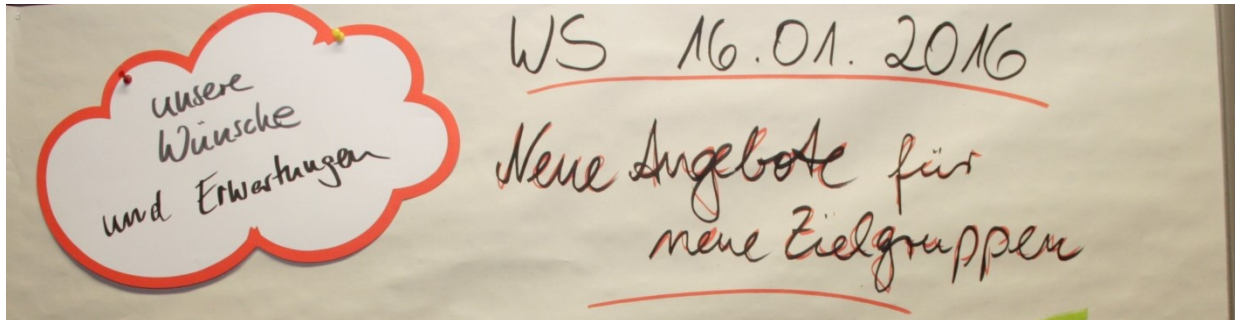 unsere
Wünsche
und Erwartungen
WS 16.01.2016
Neue Angebote für
neue Zielgruppen